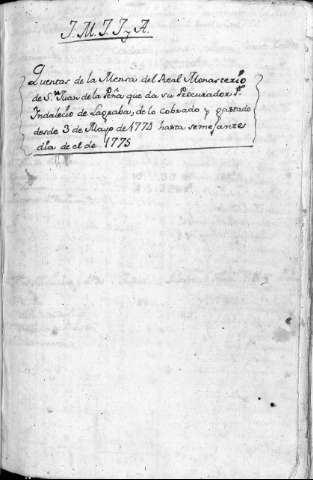 J. M. J. J. y A.
Quentas de la Mensa del Real Monasterio
de Sn. Juan de la Peña que da su Procurador Dn.
Indalecio de Lagraba, de lo cobrado y gastado
desde 3 de Mayo de 1773 hasta semejante
dia de el de 1775